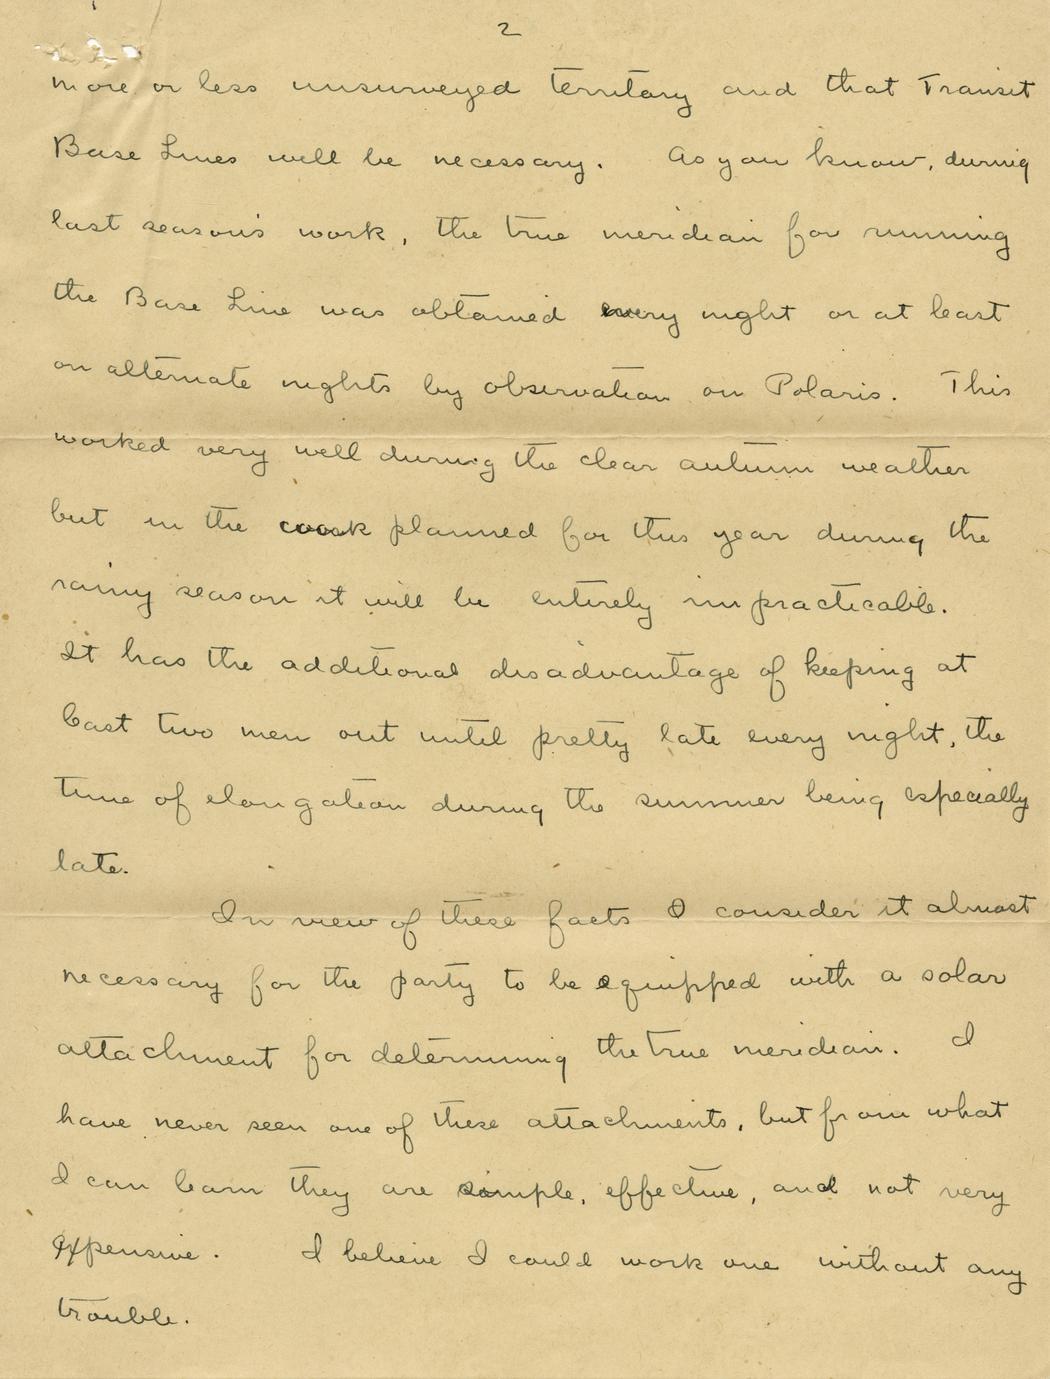 2
more or less unsurveyed territory and that Transit
Base Lines will be necessary. As you know, during
last season's work, the true meridian for running
the Base Line was obtained every night or at least
on alternate nights by observation on Polaris. This
worked very well during the clear autumn weather
but in the work planned for this year during the
rainy season it will be entirely impracticable.
It has the additional disadvantage of keeping at
least two men out until pretty late every night, the
time of elongation during the summer being especially
late.
In view of these facts I consider it almost
necessary for the party to be equipped with a solar
attachment for determining the true meridian. I
have never seen one of these attachments, but from what
I can learn they are simple, effective, and not very
expensive. I believe I could work one without any
trouble.